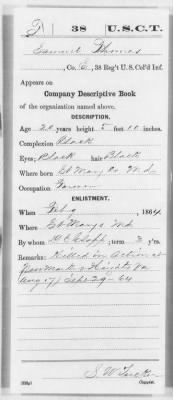 T | 38 | U.S.C.T.
Samuel Thomas
, Co. E, 38 Reg't U. S. Col'd Inf.
Appears on
Company Descriptive Book
of the organization named above.
DESCRIPTION.
Age 20 years; height 5 feet 11 inches.
Complexion Black
Eyes Black; hair Black
Where born St Mary Co Md.
Occupation Farmer
ENLISTMENT.
When Feby , 1864.
Where St Marys Md
By whom ; term 3 y'rs.
Remarks: Killed in action at
New Market Heights Va
Sept 29 64
S. W. Tucker
Copyist.